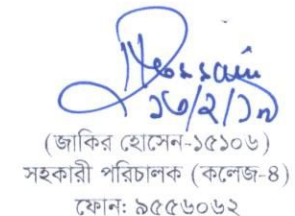 Hossain
(জাকির হোসেন-১৫১০৬)
সহকারী পরিচালক (কলেজ-৪)
ফোন: ৯৫৫৬০৬২